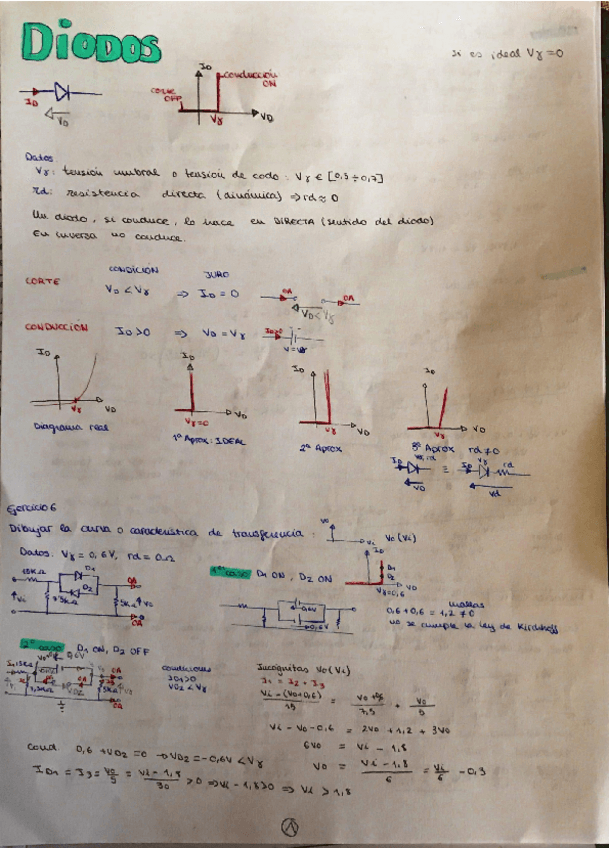 DIODOS
si es ideal Vγ=0
ID
conducción ON
corte OFF
ID
VD
Vγ
VD
Datos:
Vγ: tensión umbral o tensión de codo: Vγ ∈ [0,3 ÷ 0,7]
rd: resistencia directa (dinámica) ⇒ rd ≈ 0
Un diodo, si conduce, lo hace en DIRECTA (sentido del diodo)
En inversa no conduce.
CONDICIÓN
CORTE
VD < Vγ ⇒ ID = 0
OA
OA
VD < Vγ
CONDUCCIÓN
ID > 0 ⇒ VD = Vγ
ID
ID
ID
ID
VD
Vγ
VD
Vγ=0
VD
Vγ
VD
Vγ
Diagrama real
1ª Aprox: IDEAL
2ª Aprox
3ª Aprox rd ≠ 0
ID
VD
≡
ID
Vγ
rd
Vd
Ejercicio 6
Dibujar la curva o característica de transferencia:
Vo
Vi
Vo(Vi)
Datos: Vγ = 0,6V, rd = 0Ω
15KΩ
D1
D2
5KΩ
Vo
Vi
OA
OA
1er caso D1 ON, D2 ON
ID
D1
D2
VD
Vγ=0,6
0,6V
0,6V
mallas
0,6 + 0,6 = 1,2 ≠ 0
no se cumple la ley de Kirchhoff
2º caso D1 ON, D2 OFF
condiciones
ID1 > 0
VD2 < Vγ
Incógnitas Vo(Vi)
I1 = I2 + I3
Vi - (Vo+0,6) / 15 = Vo+0,6 / 7,5 + Vo / 5
Vi - Vo - 0,6 = 2Vo + 1,2 + 3Vo
6Vo = Vi - 1,8
Vo = Vi - 1,8 / 6 = Vi / 6 - 0,3
Cond. 0,6 + VD2 = 0 → VD2 = -0,6V < Vγ
ID1 = I3 = Vo / 5 = Vi - 1,8 / 30 > 0 ⇒ Vi - 1,8 > 0 ⇒ Vi > 1,8